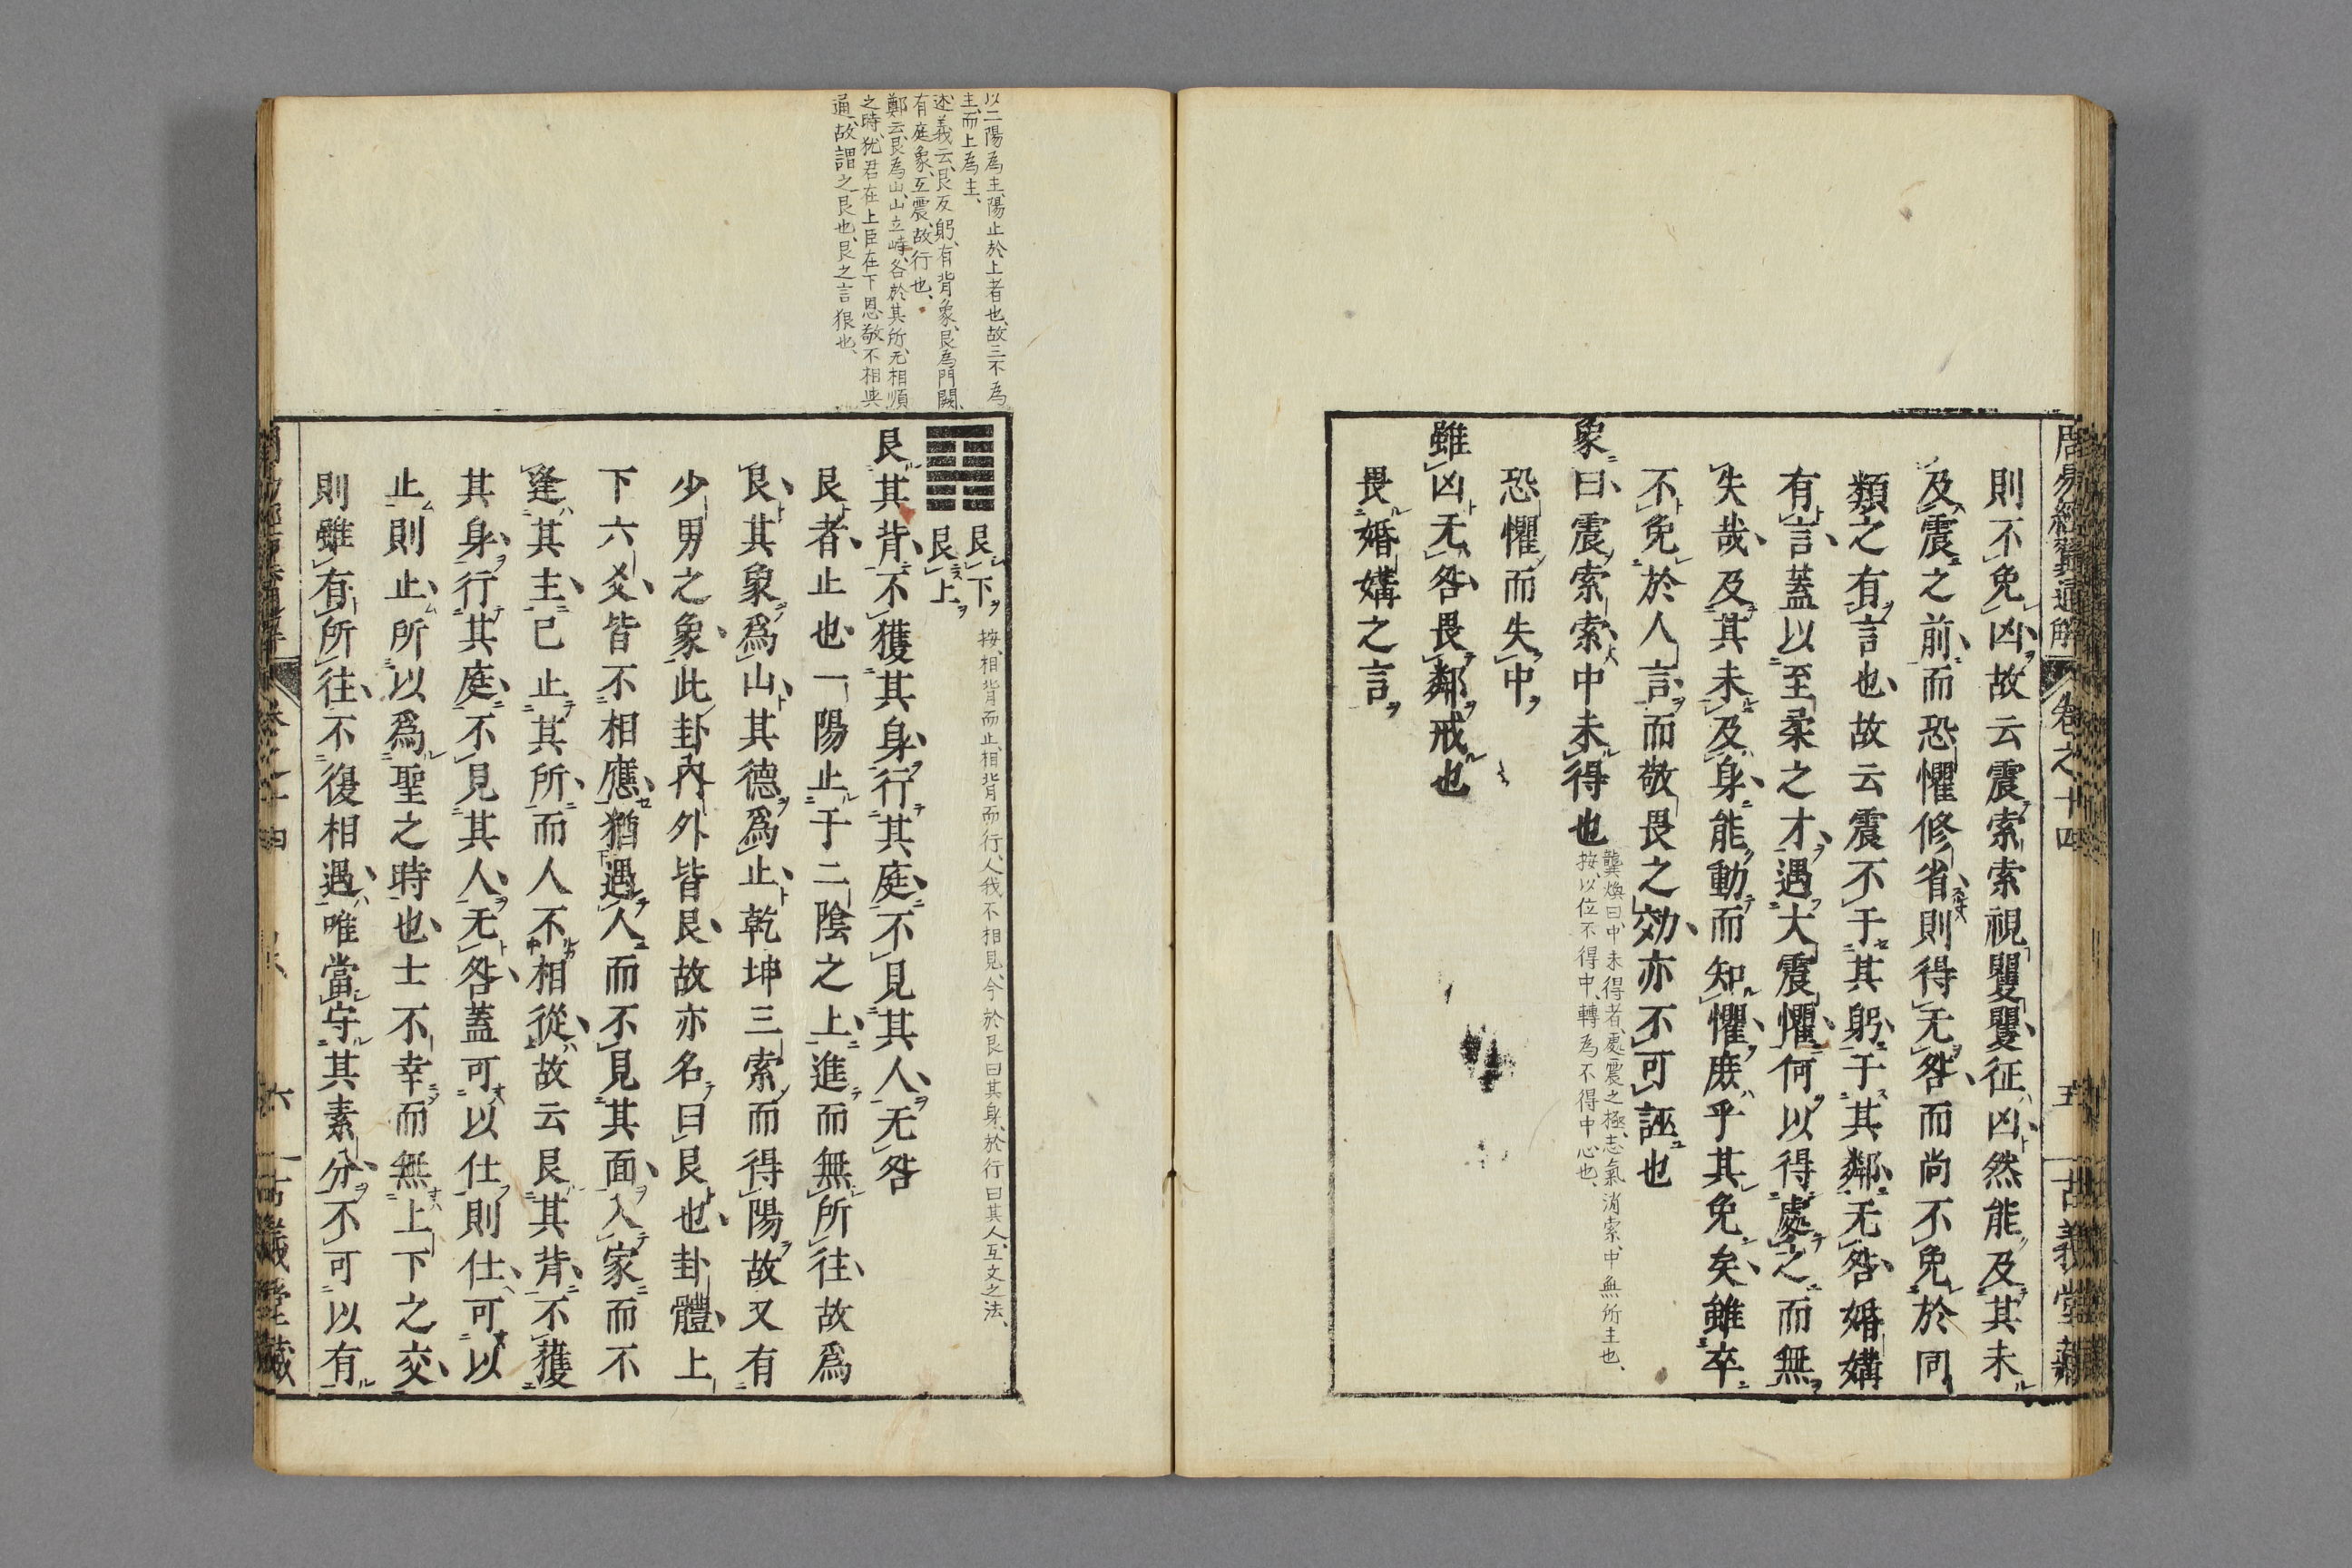 周易經翼通解 卷之十四 五 古義堂藏
則不免凶故云震索索視矍矍征凶然能及其未
及震之前而恐懼修省則得无咎而尚不免於同
類之有言也故云震不于其躬于其鄰无咎婚媾
有言蓋以至柔之才遇大震懼何以得處之而無
失哉及其未及身能動而知懼庶乎其免矣雖卒
不免於人言而敬畏之效亦不可誣也
象曰震索索中未得也
龔煥曰中未得者處震之極志氣消索中無所主也、
按、以位不得中、轉為不得中心也、
恐懼而失中
雖凶无咎畏鄰戒也
畏婚媾之言
以二陽為主、陽止於上者也、故三不為
主、而上為主、
述義云、艮反躬、有背象、艮為門闕、
有庭象、互震、故行也、
鄭云、艮為山、山立峙、各於其所、无相順
之時、犹君在上臣在下恩敬不相與
通、故謂之艮也、艮之言狠也、
艮下
艮上
按、相背而止、相背而行、人我不相見、今於艮曰其身、於行曰其人、互文之法、
艮其背不獲其身行其庭不見其人无咎
艮者止也一陽止于二陰之上進而無所往故爲
艮其象爲山其德爲止乾坤三索而得陽故又有
少男之象此卦內外皆艮故亦名曰艮也卦體上
下六爻皆不相應猶遇人而不見其面入家而不
逢其主己止其所而人不相從故云艮其背不獲
其身行其庭不見其人无咎蓋可以仕則仕可以
止則止所以爲聖之時也士不幸而無上下之交
則雖有所往不復相遇唯當守其素分不可以有
六 古義堂藏